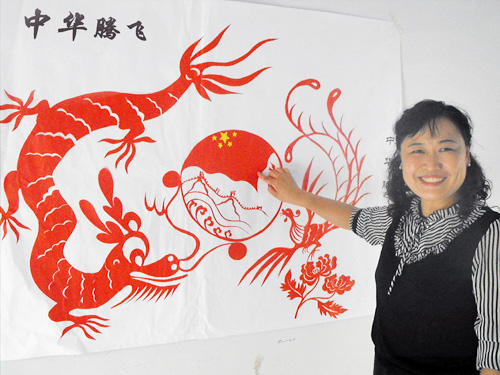 中华腾飞